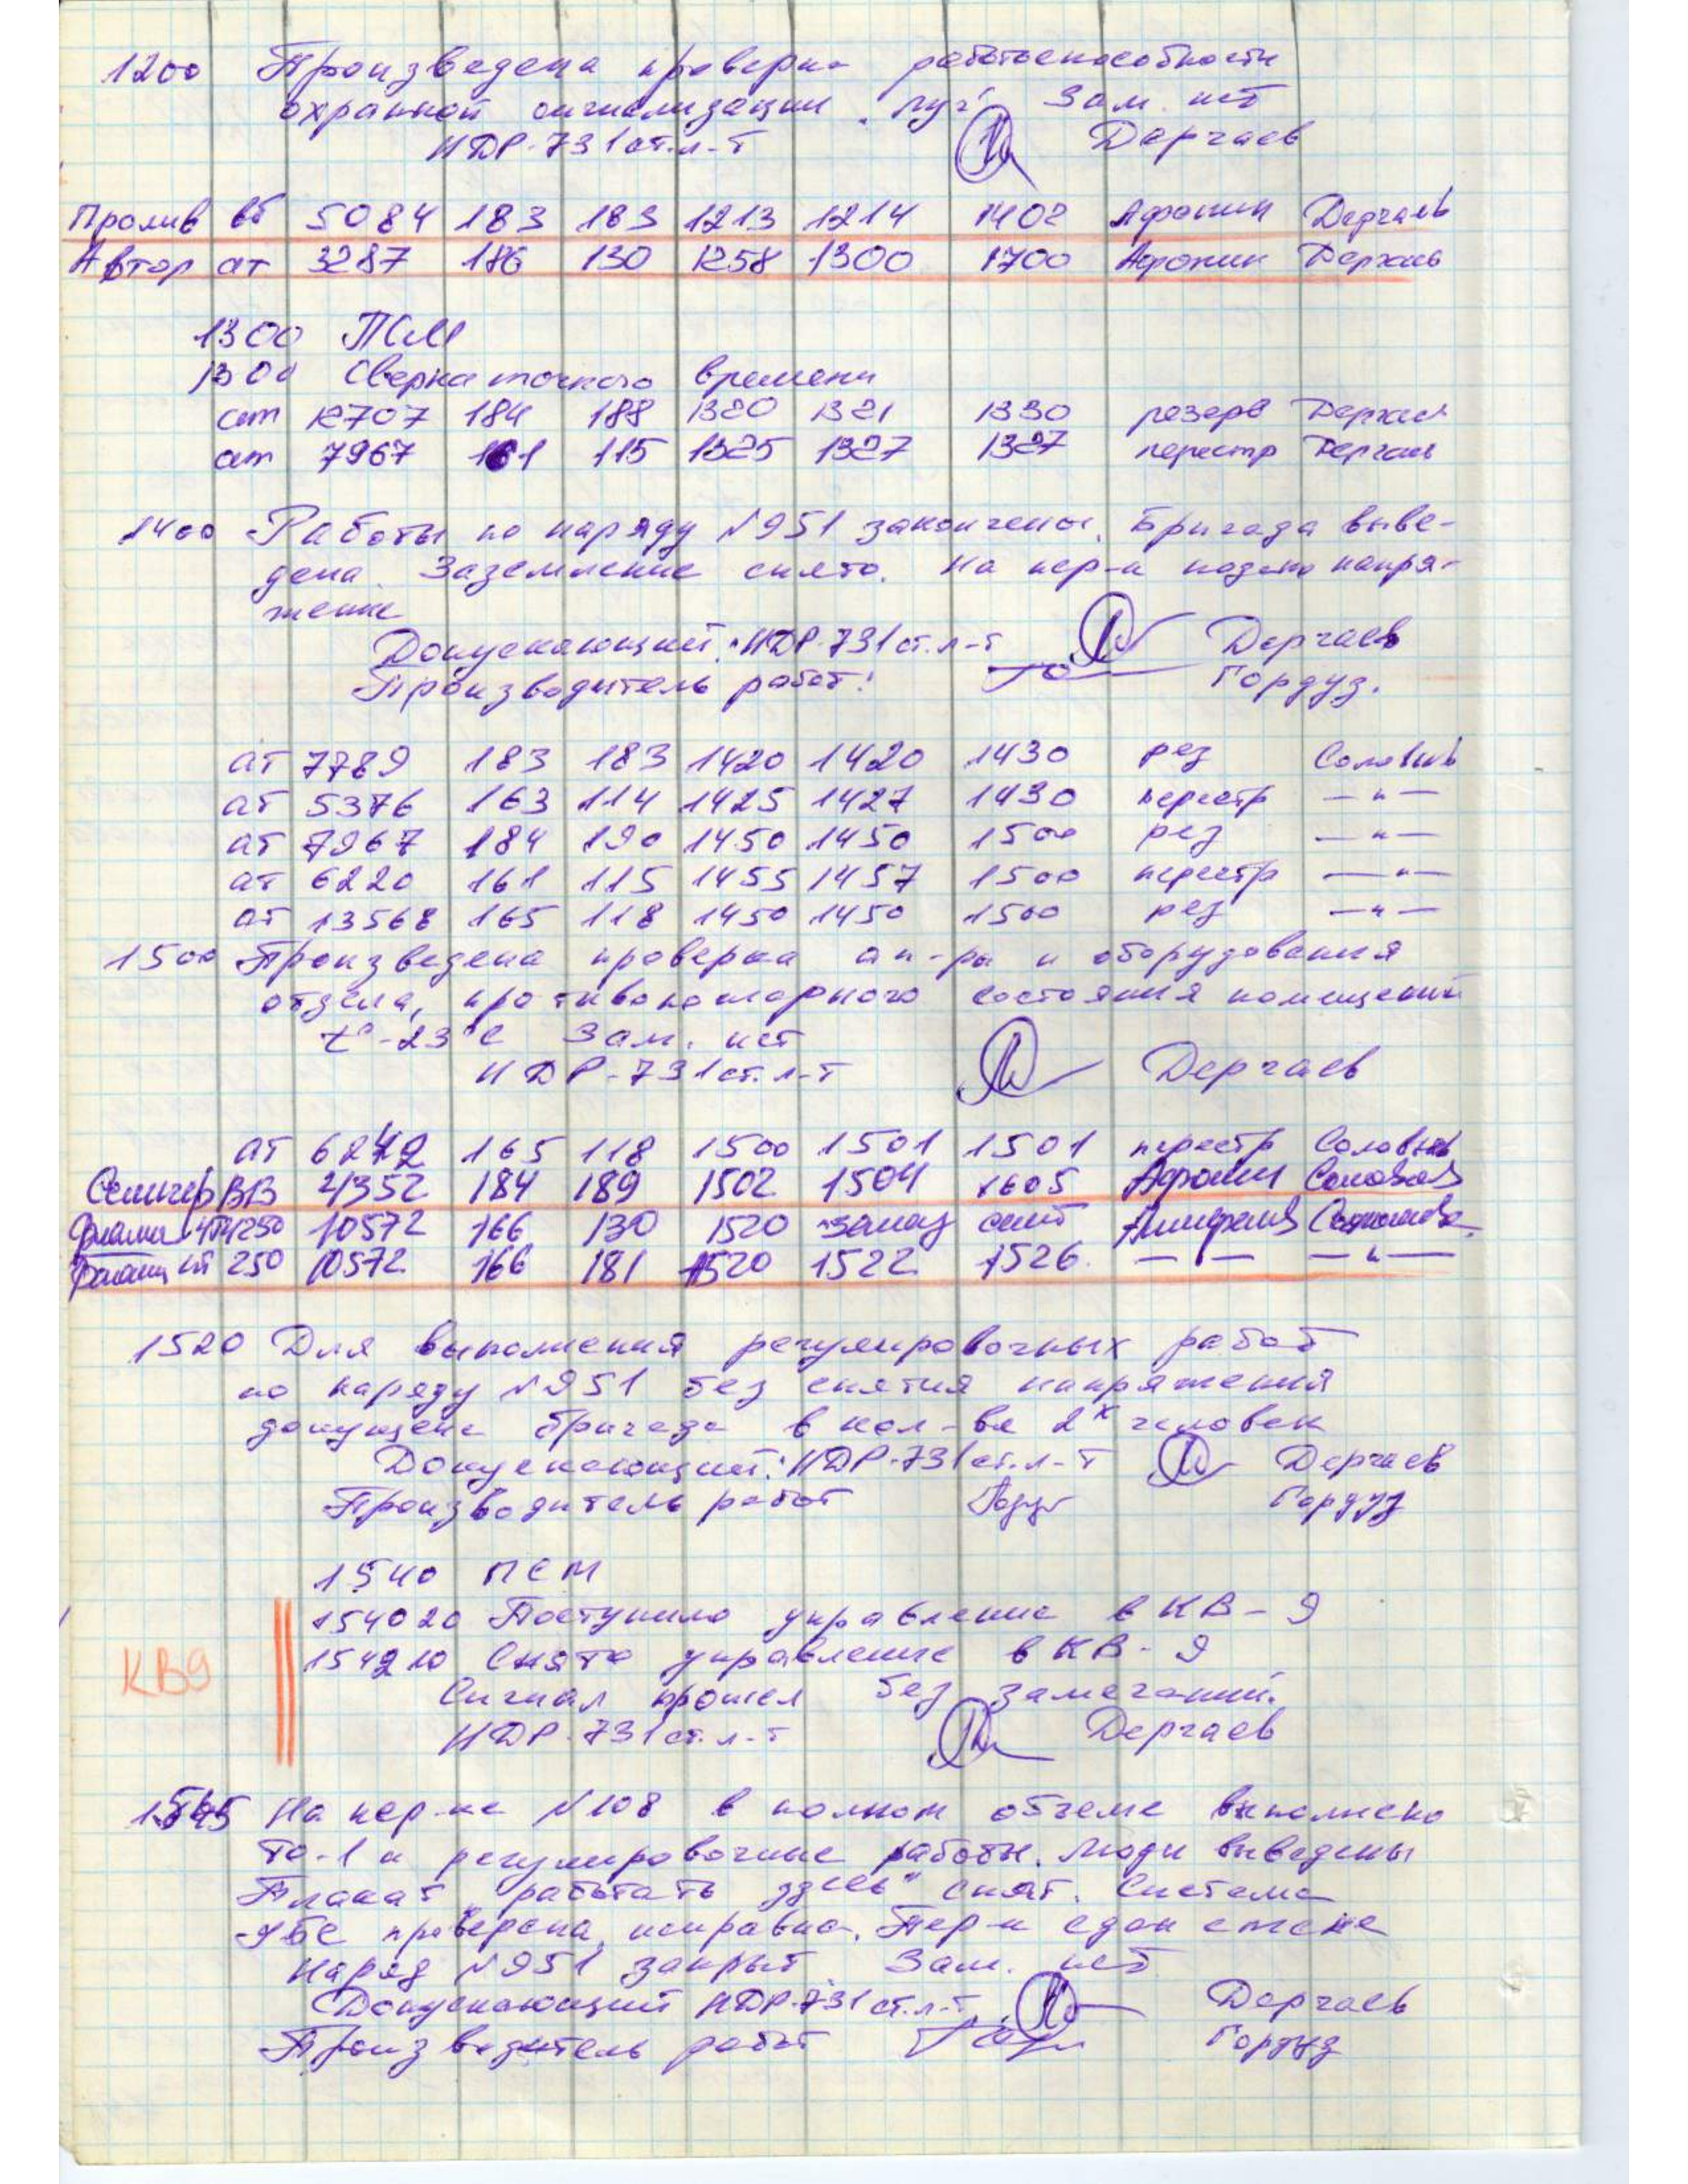 1200 Произведена проверка работоспособности
охранной сигнализации "Луч" Зам. нет
НДР-731 ст.л-т Дергаев
Пролив вб 5084 183 183 1213 1214 1402 Афонин Дергаев
Автор ат 3287 186 130 1258 1300 1700 Афонин Дергаев
1300 ПСМ
1300 Сверка точного времени
ат 12707 184 188 1320 1321 1330 резерв Дергаев
ат 7967 161 115 1325 1327 1327 перестр Дергаев
1400 Работы по наряду №951 закончены. Бригада выве-
дена. Заземление снято. На пер-к подано напря-
жение
Допускающий: НДР-731 ст.л-т Дергаев
Производитель работ: Гордуз.
ат 7789 183 183 1420 1420 1430 рез Соловьев
ат 5376 163 114 1425 1427 1430 перестр —"—
ат 7967 184 190 1450 1450 1500 рез —"—
ат 6220 161 115 1455 1457 1500 перестр —"—
ат 13568 165 118 1450 1450 1500 рез —"—
1500 Произведена проверка ап-ры и оборудования
отдела, противопожарного состояния помещений
t°-23°С Зам. нет
НДР-731 ст.л-т Дергаев
ат 6242 165 118 1500 1501 1501 перестр Соловьев
ВВ 21352 184 189 1502 1504 1605 Афонин Соловьев
250 10572 166 130 1520
250 10572 166 181 1520 1522 1526 — — —"—
1520 Для выполнения регулировочных работ
по наряду №951 без снятия напряжения
допущена бригада в кол-ве 2х человек
Допускающий: НДР-731 ст.л-т Дергаев
Производитель работ Гордуз
1540 ПСМ
154020 Поступило управление в КВ-9
КВ9 154210 Снято управление в КВ-9
Сигнал прошел без замечаний.
НДР-731 ст.л-т Дергаев
1545 На пер-ке №108 в полном объеме выполнено
ТО-1 и регулировочные работы. Люди выведены
Плакат "работать здесь" снят. Система
УБС проверена, исправна. Пер-к
Наряд №951 закрыт Зам. нет
Допускающий НДР-731 ст.л-т Дергаев
Производитель работ Гордуз